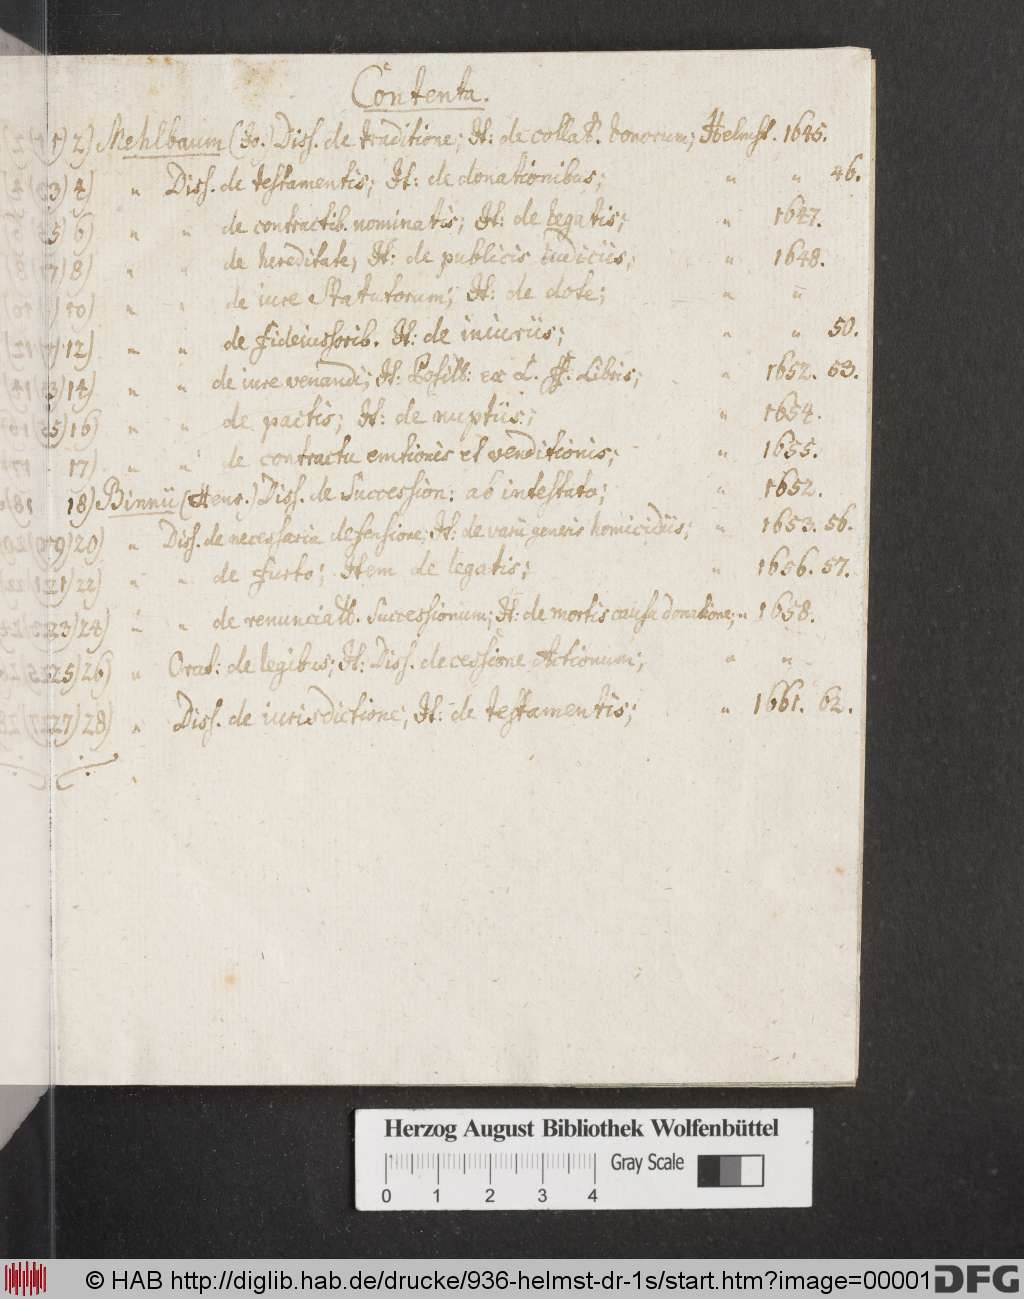 Contenta.
1) 2) Mehlbaum (Jo.) Diss. de traditione; It: de collat. bonorum; Helmst. 1645.
3) 4) " Diss. de testamentis; It: de donationibus; " " 46.
5) 6) " " de contractib. nominatis; It: de legatis; " 1647.
7) 8) " " de hereditate; It: de publicis iudiciis; " 1648.
10) " " de iure Statutorum; It: de dote; " "
12) " " de fideiussorib. It: de iniuriis; " " 50.
13) 14) " " de iure venandi; It: Positt: ex L. ff. Libris; " 1652. 53.
15) 16) " " de pactis; It: de nuptiis; " 1654.
17) " " de contractu emtionis et venditionis; " 1655.
18) Binnii (Henr.) Diss. de Succession: ab intestato; " 1652.
19) 20) " Diss. de necessaria defensione; It: de varii generis homicidiis; " 1653. 56.
21) 22) " " de furto; Item de legatis; " 1656. 57.
23) 24) " " de renunciatt. Successionum; It: de mortis causa donatione; " 1658.
25) 26) " Orat: de legibus; It: Diss. de cessione Actionum; " "
27) 28) " Diss. de iurisdictione; It: de testamentis; " 1661. 62.
Herzog August Bibliothek Wolfenbüttel
Gray Scale
0 1 2 3 4
© HAB http://diglib.hab.de/drucke/936-helmst-dr-1s/start.htm?image=00001
DFG